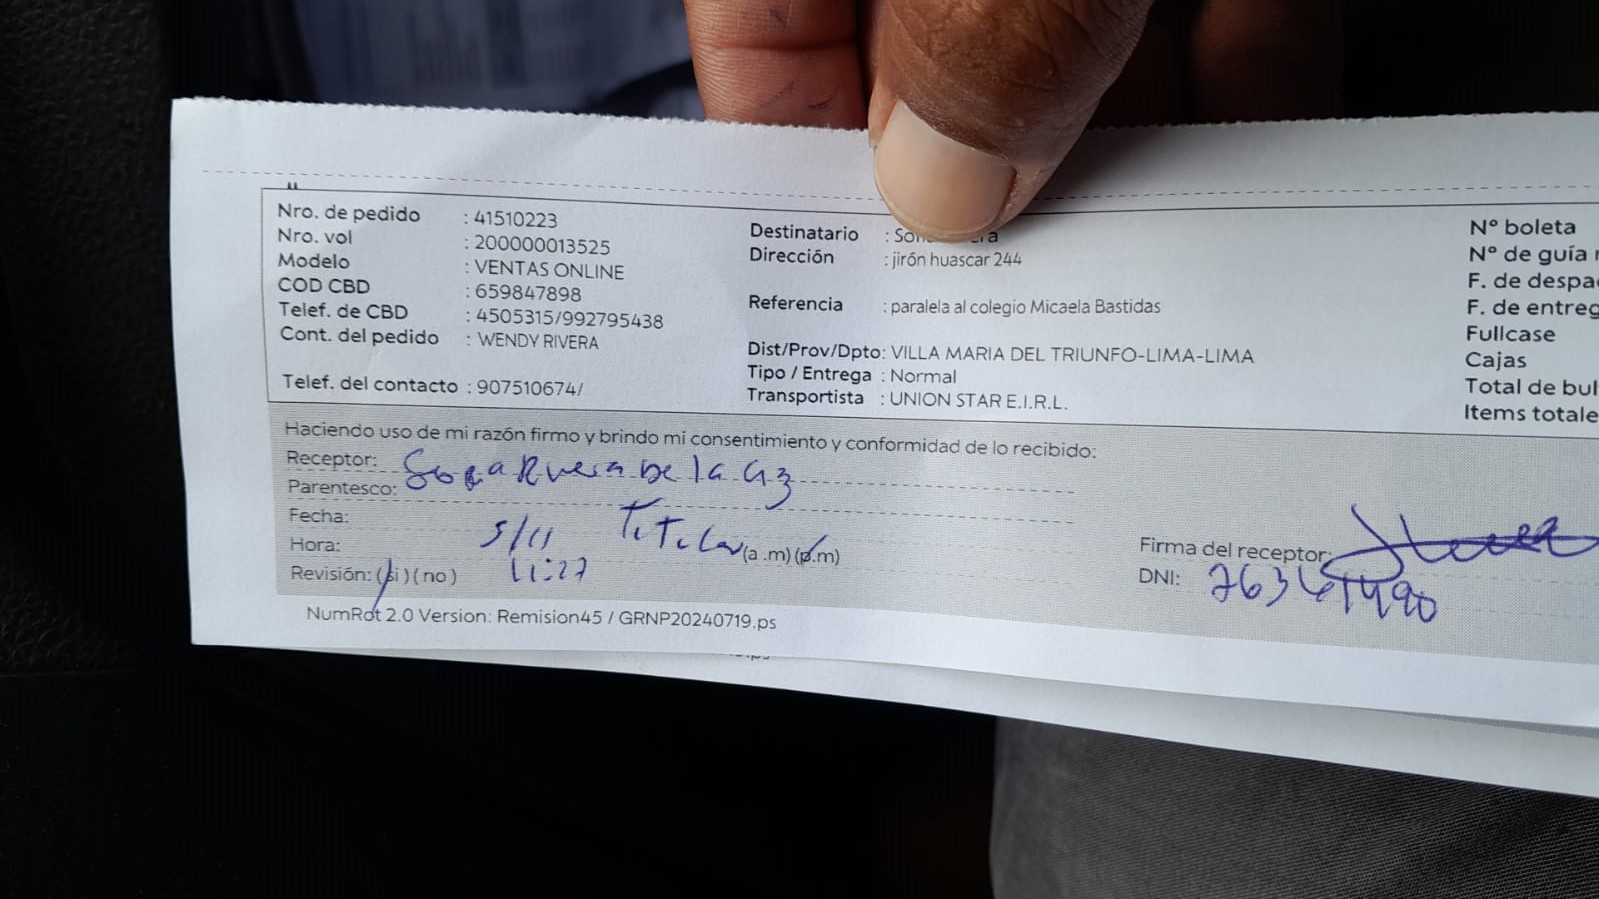 Nro. de pedido : 41510223
Nro. vol : 200000013525
Modelo : VENTAS ONLINE
COD CBD : 659847898
Telef. de CBD : 4505315/992795438
Cont. del pedido : WENDY RIVERA
Telef. del contacto : 907510674/
Destinatario :
Dirección : jirón huascar 244
Referencia : paralela al colegio Micaela Bastidas
Dist/Prov/Dpto: VILLA MARIA DEL TRIUNFO-LIMA-LIMA
Tipo / Entrega : Normal
Transportista : UNION STAR E.I.R.L.
Nº boleta
Nº de guía
F. de
F. de
Fullcase
Cajas
Total de
Items
Haciendo uso de mi razón firmo y brindo mi consentimiento y conformidad de lo recibido:
Receptor: Rivera De la
Parentesco: Titular
Fecha: 5/11
Hora: 11:27 (a.m)(p.m)
Revisión: (si) (no)
Firma del receptor:
DNI:
NumRot 2.0 Version: Remision45 / GRNP20240719.ps